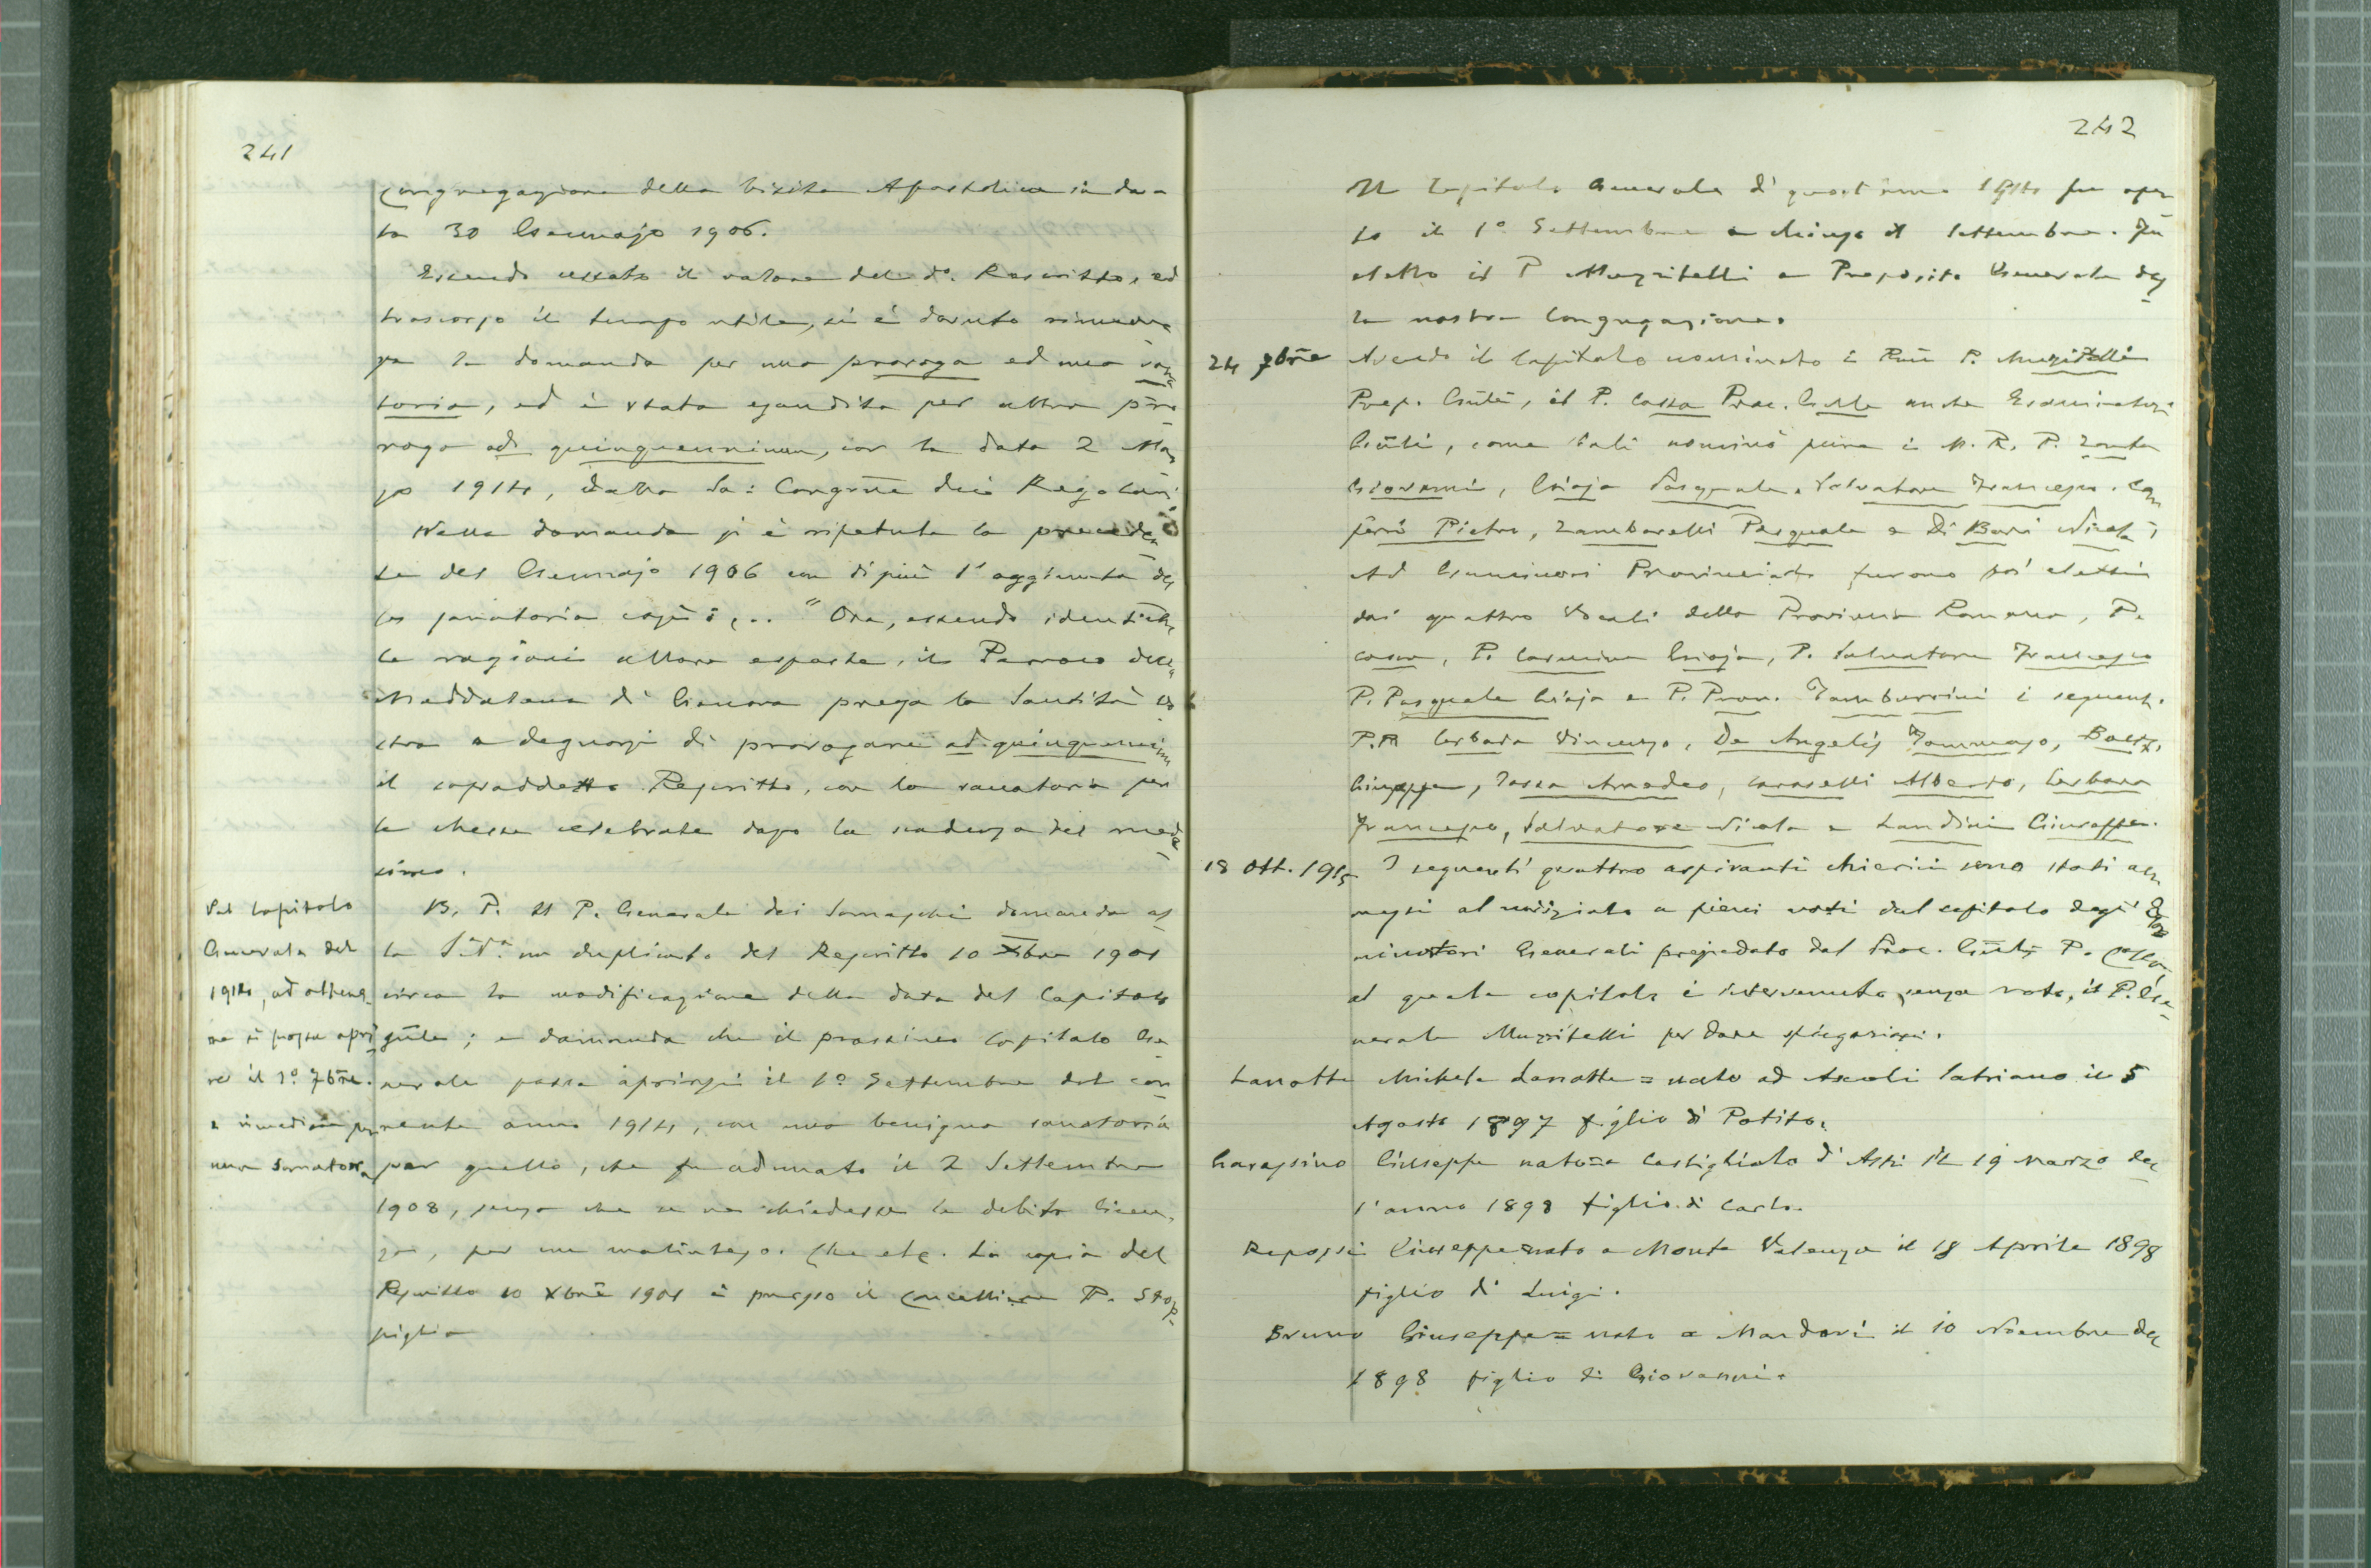 241
Congregazione della Visita Apostolica in da=
ta 30 Gennajo 1906.
Essendo cessato il valore del do. Rescritto, ed
trascorso il tempo utile, si è dovuto rinnova
re la domanda per una proroga ed una sana
toria, ed è stata esaudita per altra pro
roga ad quinquennium, con la data 2 Mar
zo 1914, dalla Sa: Congrne dei Regolari
Nella domanda si è ripetuta la preceden
te del Gennajo 1906 con di più l'aggiunta del
la sanatoria così: ... "Ora, essendo identiche
le ragioni allora esposte, il Parroco della
Maddalena di Genova prega la Santità Vo
stra a degnarsi di prorogare ad quinquennium
il sopraddetto Rescritto, con la sanatoria per
le Messe celebrate dopo la scadenza del mede
simo.
Pel Capitolo
Generale del
1914, ad ottene
re si possa apri
re il 1º 7bre.
e rimediare per
una Sanatoria
B. P. Il P. Generale dei Somaschi domanda al
la S.tà un duplicato del Rescritto 10 Xbre 1901
circa la modificazione della data del Capitolo
gnle; e domanda che il prossimo Capitolo Ge
nerale possa aprirsi il 1º Settembre del cor
rente anno 1914, con una benigna sanatoria
per quello, che fu adunato il 2 Settembre
1908, senza che se ne chiedesse la debita licen
za, per un malinteso. Che etc. La copia del
Rescritto 10 Xbre 1901 è presso il Cancelliere P. Stop
piglia
242
Il Capitolo Generale di quest'anno 1914 fu aper
to il 1º Settembre e chiuso il Settembre. Fu
eletto il P Muzzitelli a Preposito Generale del
la nostra Congregazione.
24 7bre Avendo il Capitolo nominato i Rmi P. Muzzitelli
Prep. Gnle, il P. Cossa Proc. Gnle anche Esaminatori
Gnli, come tali nominò pure i M. R. P. Zonta
Giovanni, Gioja Pasquale, Salvatore Francesco, Cam
perì Pietro, Zambarelli Pasquale e Di Bari Nicola;
Ad Esaminatori Provinciali furono poi eletti
dai quattro Vocali della Provincia Romana, P.
Cossa, P. Carmine Gioja, P. Salvatore Francesco
P. Pasquale Gioja e P. Prov. Tamburrini i seguenti
P.P. Cerbara Vincenzo, De Angelis Tommaso,
Giuseppe, Amadeo, Caroselli Alberto, Cerbara
Francesco, Salvatore Nicola e Landini Giuseppe.
18 Ott. 1915 I seguenti quattro aspiranti chierici sono stati am
messi al noviziato a pieni voti dal capitolo degli Esa
minatori Generali presieduto dal Proc. Gnle P. Cossa
al quale capitolo è intervenuto, senza voto, il P. Ge
nerale Muzzitelli per dare spiegazioni.
Lanotte Michele Lanotte = nato ad Ascoli Satriano il 5
Agosto 1897 figlio di Potito.
Garassino Giuseppe nato = a Castigliolo d'Asti il 19 Marzo del
l'anno 1898 figlio di Carlo.
Repossi Giuseppe = nato a Monte Valenza il 18 Aprile 1898
figlio di Luigi.
Bruno Giuseppe = nato a Mondovì il 10 Novembre del
1898 figlio di Giovanni.